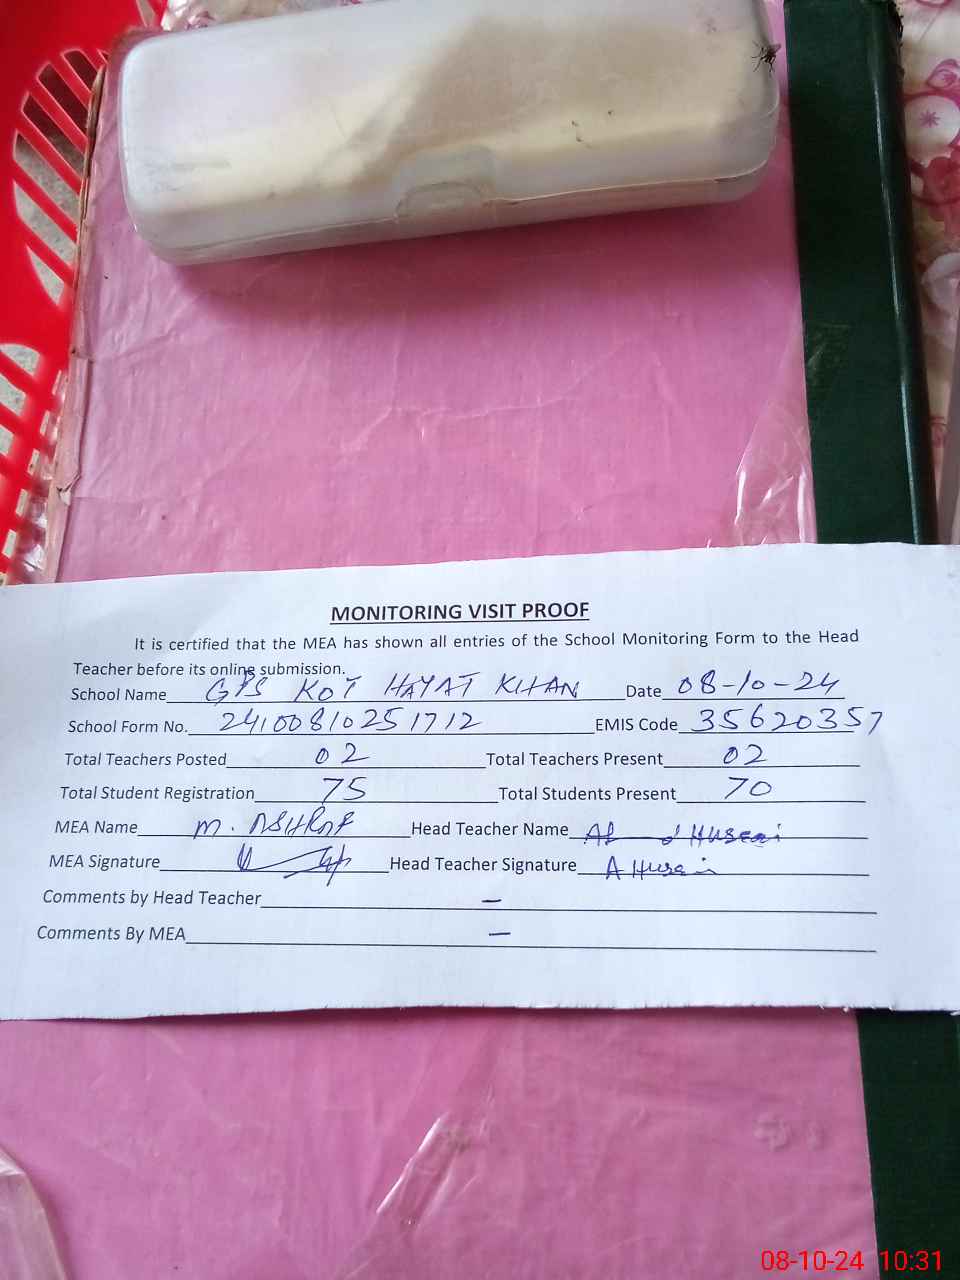 MONITORING VISIT PROOF
It is certified that the MEA has shown all entries of the School Monitoring Form to the Head
Teacher before its online submission.
School Name GPS KOT HAYAT KHAN Date 08-10-24
School Form No. 24100810251712 EMIS Code 35620357
Total Teachers Posted 02 Total Teachers Present 02
Total Student Registration 75 Total Students Present 70
MEA Name M. ASHRAF Head Teacher Name
MEA Signature Head Teacher Signature A Husain
Comments by Head Teacher –
Comments By MEA –
08-10-24 10:31